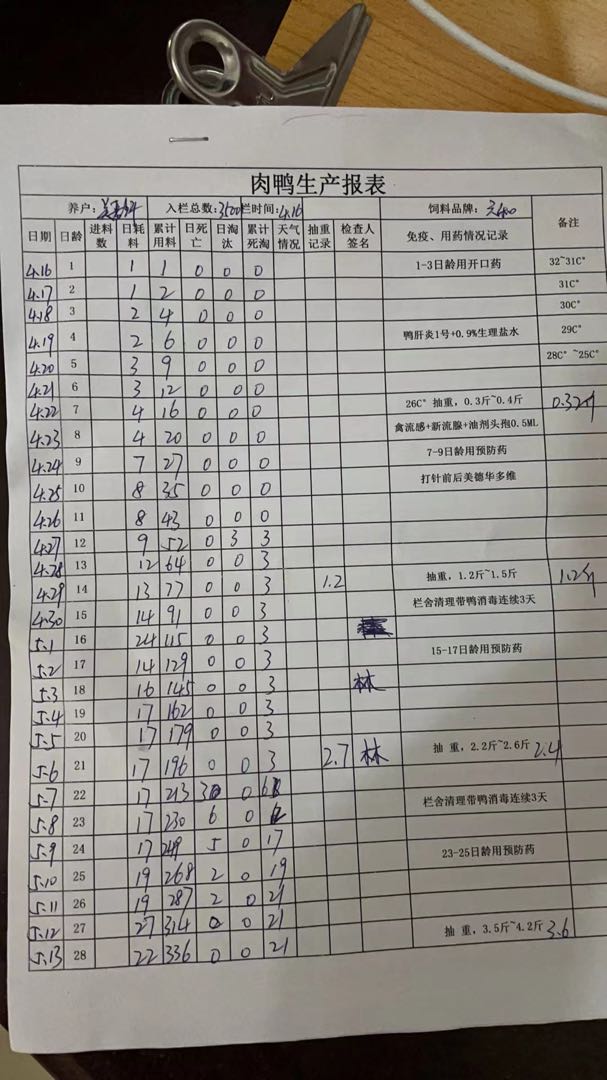 肉鸭生产报表
养户: 入栏总数:3500 栏时间:4.16 饲料品牌: 备注
日期 日龄 进料数 日耗料 累计用料 日死亡 日淘汰 累计死淘 天气情况 抽重记录 检查人签名 免疫、用药情况记录
4.16 1 1 1 0 0 0 1-3日龄用开口药 32~31C°
4.17 2 1 2 0 0 0 31C°
4.18 3 2 4 0 0 0 30C°
4.19 4 2 6 0 0 0 鸭肝炎1号+0.9%生理盐水 29C°
4.20 5 3 9 0 0 0 28C°~25C°
4.21 6 3 12 0 0 0
4.22 7 4 16 0 0 0 26C° 抽重，0.3斤~0.4斤 0.32斤
4.23 8 4 20 0 0 0 禽流感+新流腺+油剂头孢0.5ML
4.24 9 7 27 0 0 0 7-9日龄用预防药
4.25 10 8 35 0 0 0 打针前后美德华多维
4.26 11 8 43 0 0 0
4.27 12 9 52 0 3 3
4.28 13 12 64 0 0 3
4.29 14 13 77 0 0 3 1.2 抽重，1.2斤~1.5斤 1.2斤
4.30 15 14 91 0 0 3 栏舍清理带鸭消毒连续3天
5.1 16 24 115 0 0 3
5.2 17 14 129 0 0 3 15-17日龄用预防药
5.3 18 16 145 0 0 3 林
5.4 19 17 162 0 0 3
5.5 20 17 179 0 0 3
5.6 21 17 196 0 0 3 2.7 林 抽 重，2.2斤~2.6斤 2.4
5.7 22 17 213 0
5.8 23 17 230 6 0 栏舍清理带鸭消毒连续3天
5.9 24 17 5 0 17
5.10 25 19 268 2 0 19 23-25日龄用预防药
5.11 26 19 287 2 0 21
5.12 27 27 314 0 0 21
5.13 28 22 336 0 0 21 抽 重，3.5斤~4.2斤 3.6